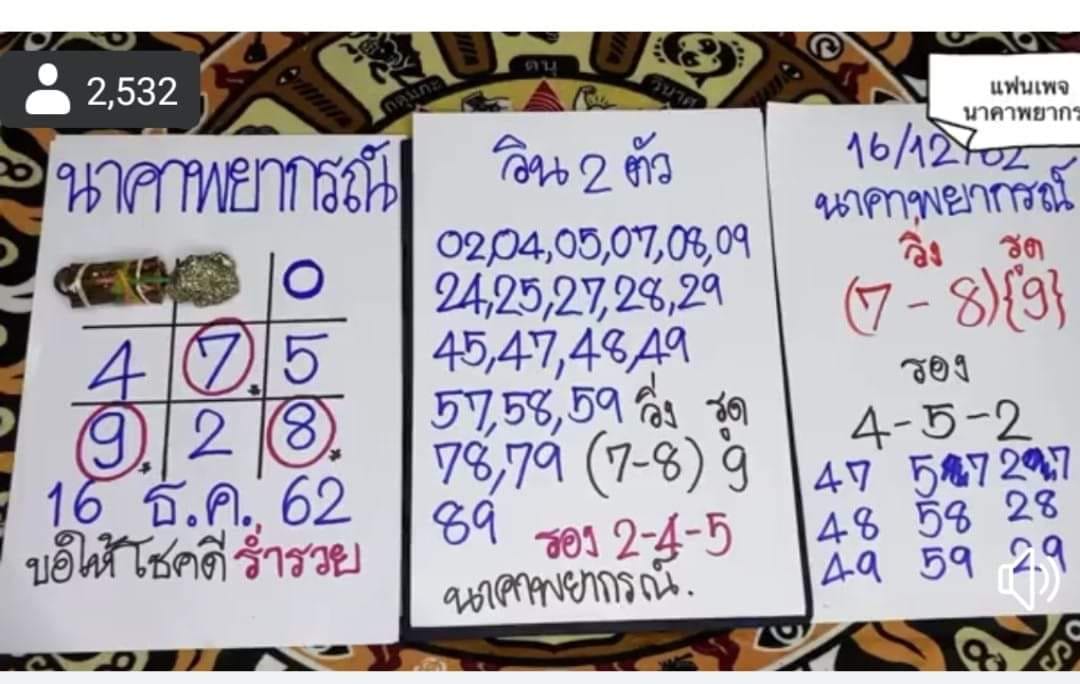 2,532
กตุแกะ
ดนุ
วินาศ
แฟนเพจ
นาคาพยากร
นาคาพยากรณ์
0
4 7 5
9 2 8
16 ธ.ค. 62
ขอให้โชคดี ร่ำรวย
วิน 2 ตัว
02,04,05,07,08,09
24,25,27,28,29
45,47,48,49
57,58,59 วิ่ง รูด
78,79 (7-8) 9
89 รอง 2-4-5
นาคาพยากรณ์.
16/12/62
นาคาพยากรณ์
วิ่ง รูด
(7-8){9}
รอง
4-5-2
47 57 27
48 58 28
49 59 29